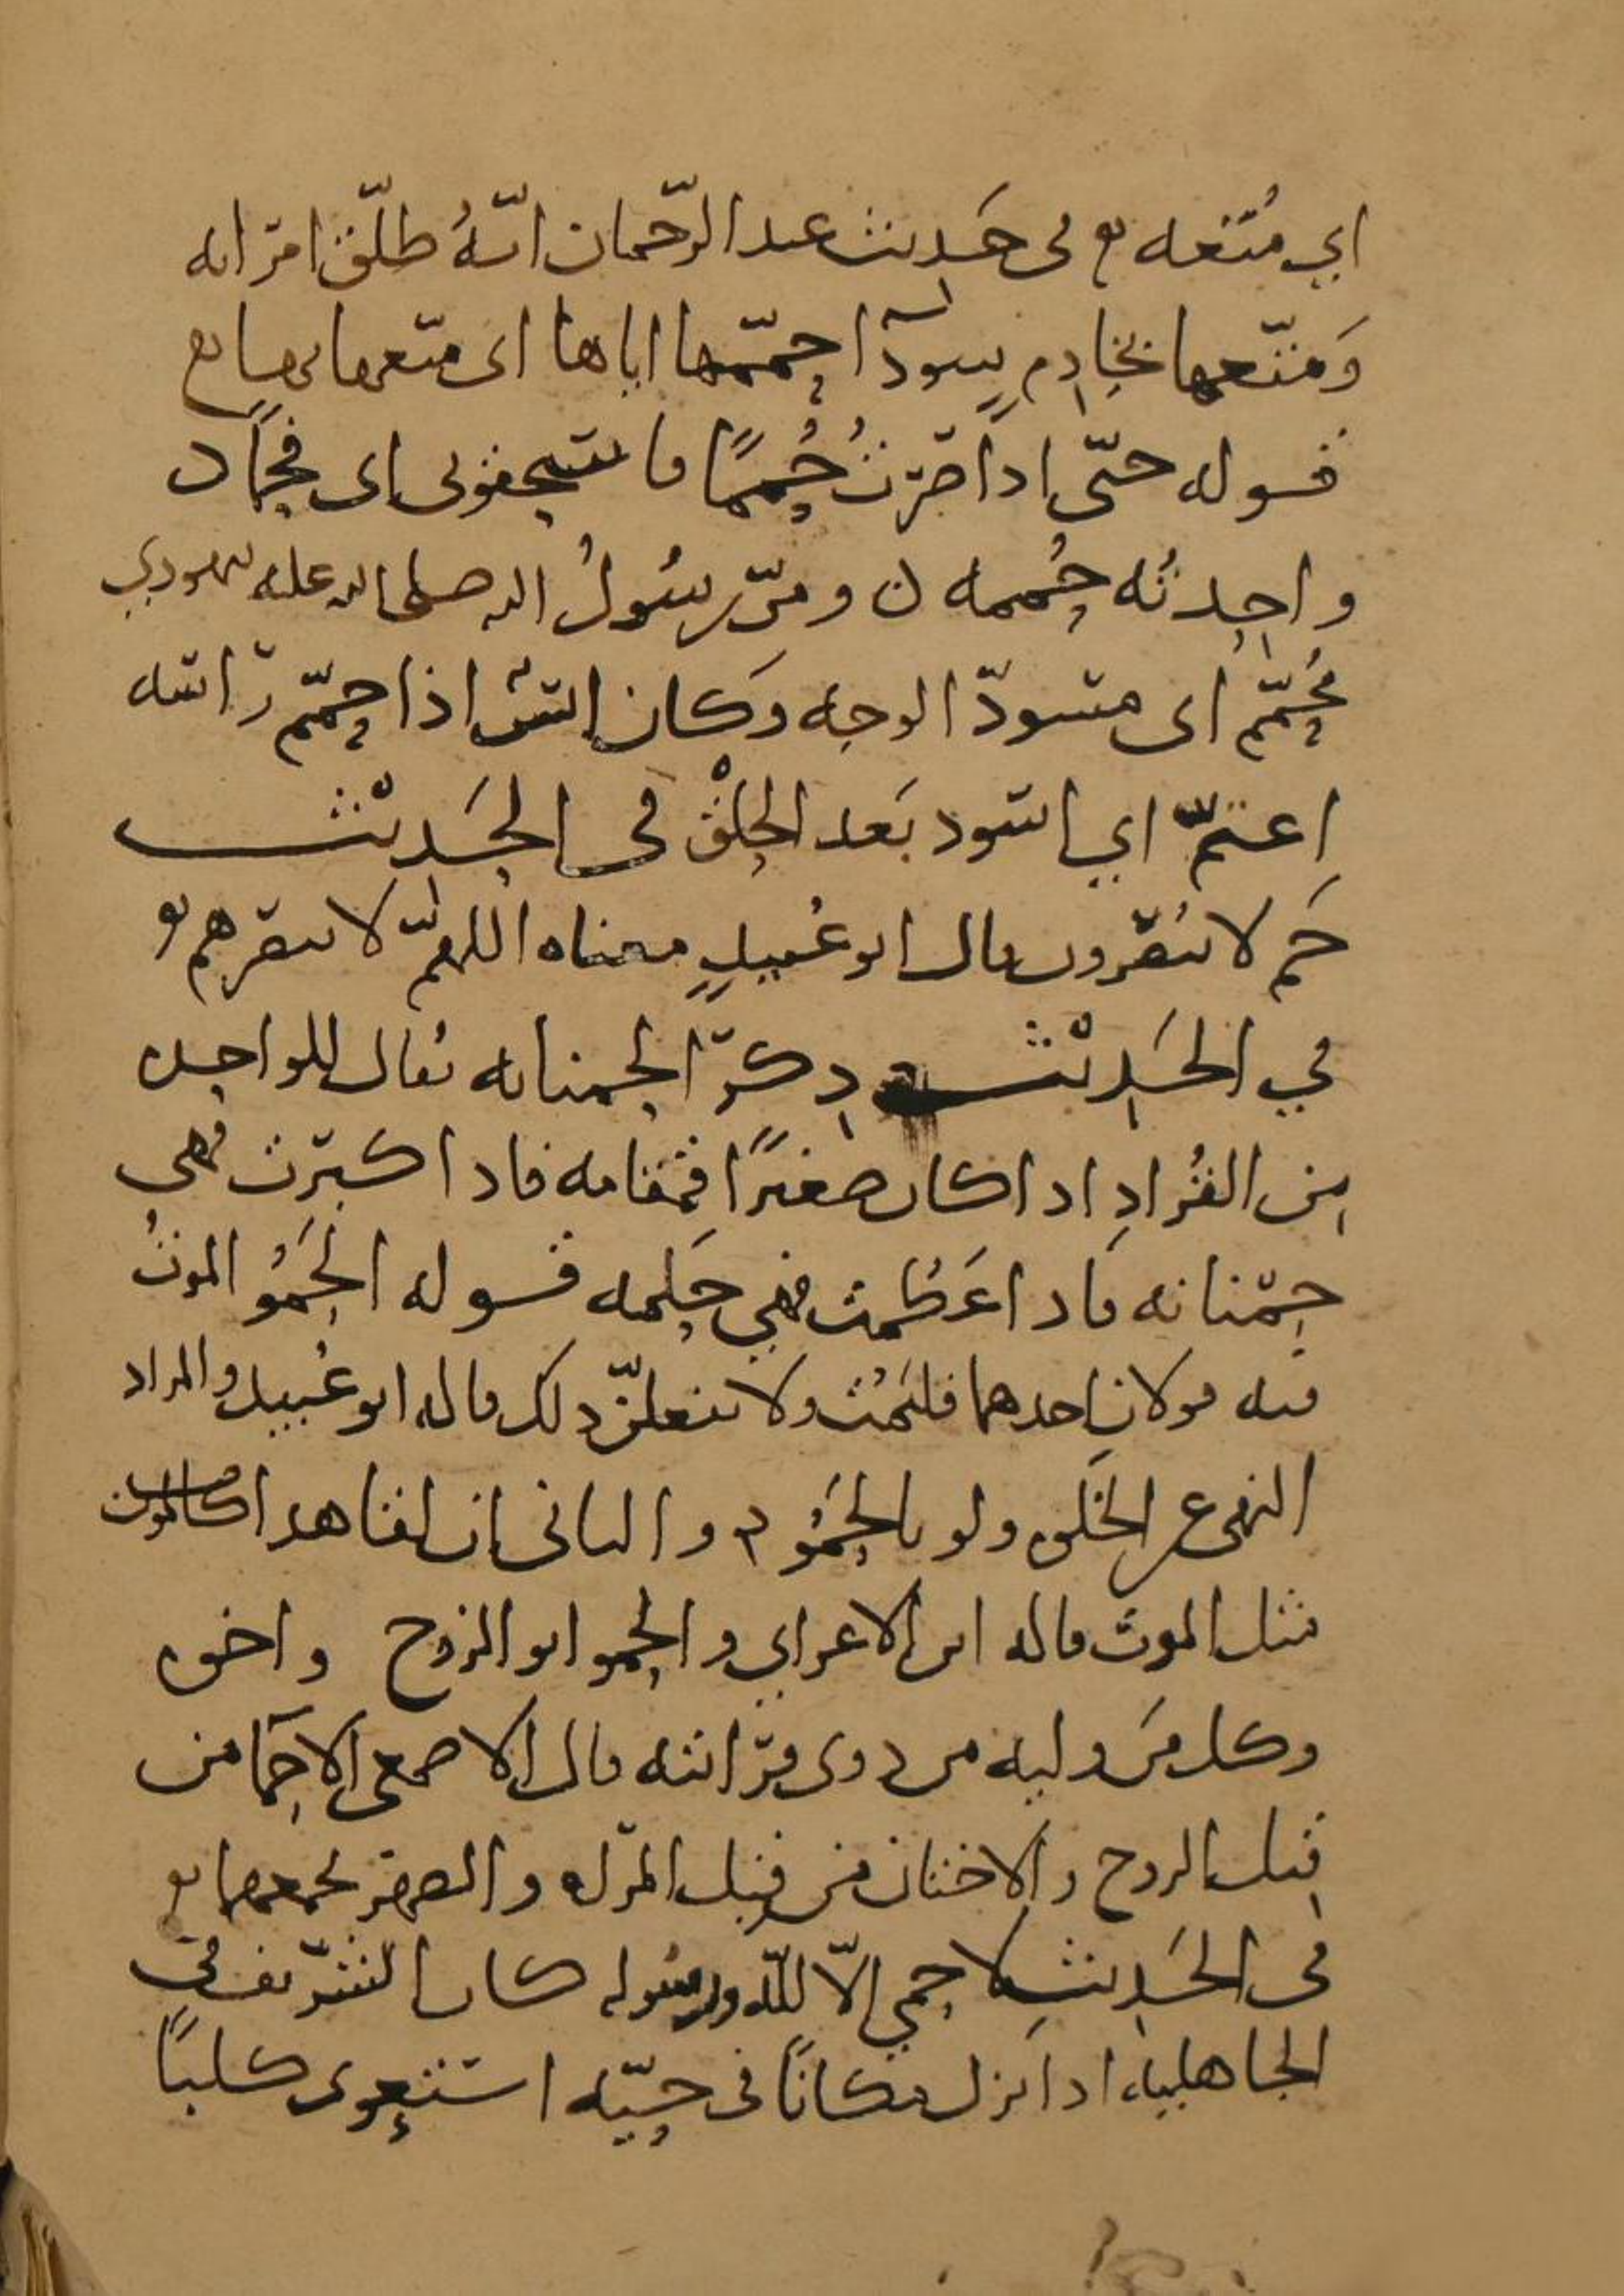 اي مُتعه في حَديث عبد الرّحمان انّهُ طلّق امرَاته
وَمتّعها بخادِمٍ سودآ حمّمها اياها اى متّعها بها
قوله حتّى اذا صِرتُ حُممًا فاسحقونى اى فحمًا
واحدتُه حُممه ومرّ رسُولُ الله صلى الله عليه بيهودي
مُحمّم اى مسودّ الوجه وَكان انس اذا حمّم رَاسه
اعتمّ اي اسود بَعد الحلْق فى الحَديْث
حَم لا يُنصَرون قال ابو عُبيدٍ معناه اللهمّ لا ينصرهم
في الحَديْث ذِكر الحمنانه يُقال للواحده
مِن القُرادِ اذا كان صغيرًا قمقامه فاذا كبرَت فهى
حِمْنانه فاذا عَظمت فهي حلَمه قوله الحَمْوُ الموتُ
فيه قولانِ احدهما فليَمُت ولا يفعلنّ ذلك قاله ابو عُبيد والمراد
النهى عن الخلوه ولو بالحَمْو والثانى ان لقا هذا كالموت
مثل الموت قاله ابن الاعرابي والحمو ابو الزوج واخوه
وكل مَن وليه من ذوى قرَابته قال الاصمعى الاحمَا من
قِبل الزوج والاختان من قِبل المرأه والصهر يجمعهما
فى الحَديث لا حِمي الّا للّه ورسُوله كان الشرّيف في
الجاهليه اذا نزل مكانًا فى حيّه استعوى كلبًا